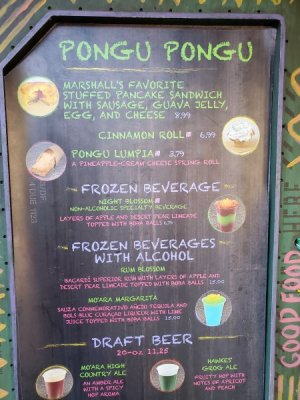 PONGU PONGU
MARSHALL'S FAVORITE
STUFFED PANCAKE SANDWICH
WITH SAUSAGE, GUAVA JELLY,
EGG, AND CHEESE 8.99
CINNAMON ROLL 6.99
PONGU LUMPIA 3.79
A PINEAPPLE-CREAM CHEESE SPRING ROLL
FROZEN BEVERAGE
NIGHT BLOSSOM
NON-ALCOHOLIC SPECIALTY BEVERAGE
LAYERS OF APPLE AND DESERT PEAR LIMEADE
TOPPED WITH BOBA BALLS
FROZEN BEVERAGES
WITH ALCOHOL
RUM BLOSSOM
BACARDI SUPERIOR RUM WITH LAYERS OF APPLE AND
DESERT PEAR LIMEADE TOPPED WITH BOBA BALLS 15.00
MO'ARA MARGARITA
SAUZA CONMEMORATIVO AÑEJO TEQUILA AND
BOLS BLUE CURAÇAO LIQUEUR WITH LIME
JUICE TOPPED WITH BOBA BALLS 15.00
DRAFT BEER
20-oz. 11.25
MO'ARA HIGH
COUNTRY ALE
AN AMBER ALE
WITH A SPICY
HOP AROMA
HAWKES'
GROG ALE
FRUITY HOP WITH
NOTES OF APRICOT
AND PEACH
GOOD FOOD HERE